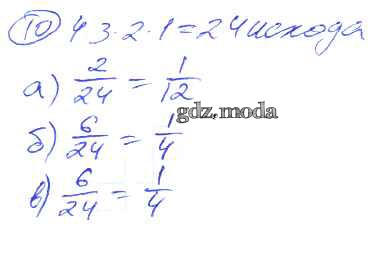 10) 4 3 · 2 · 1 = 24 исхода
а) 2/24 = 1/12
gdz.moda
б) 6/24 = 1/4
в) 6/24 = 1/4